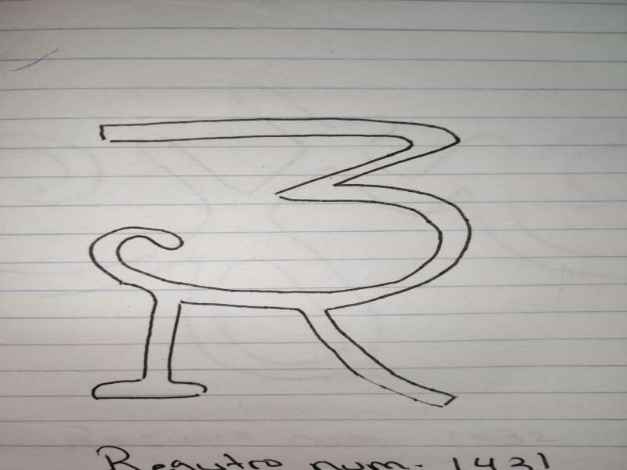 3
R
Registro num. 1431